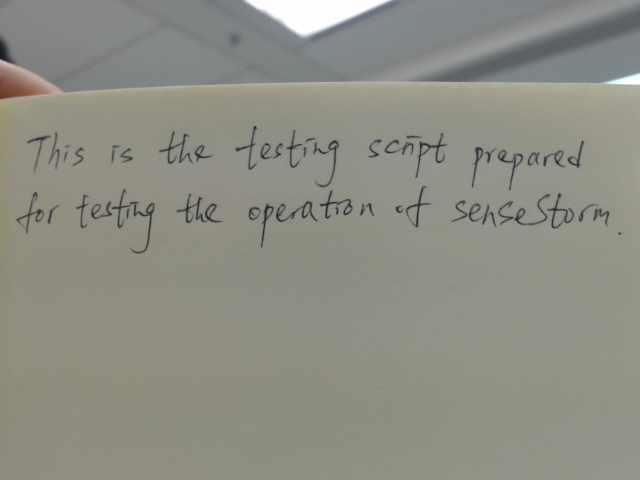 This is the testing script prepared
for testing the operation of senseStorm.